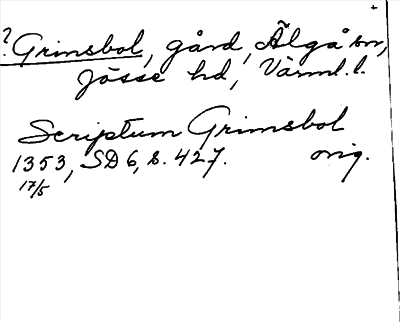 ? Grimsbol, gård, Älgå sn,
Jösse hd, Värml. l.
Scriptum Grimsbol
1353, SD 6, s. 427. orig.
17/5